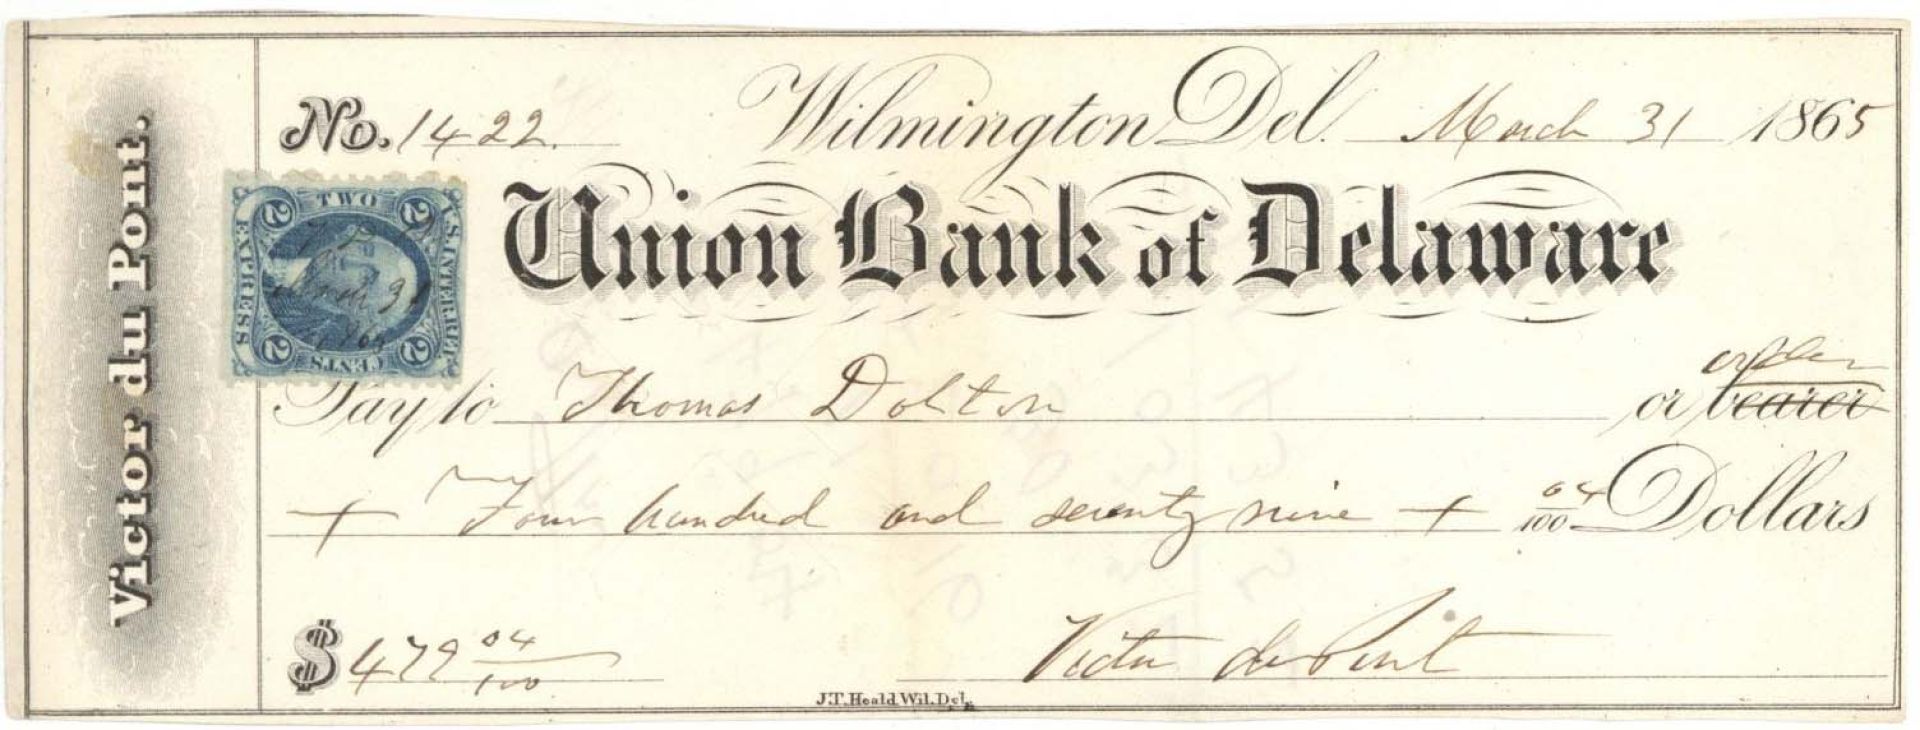 Victor du Pont.
No. 1422. Wilmington Del. March 31 1865
TWO
U.S. INTER. REV.
EXPRESS
CENTS
2 2 2 2
March 31
1865
Union Bank of Delaware
order
Pay to Thomas Dolton or bearer
+ Four hundred and seventy nine + 04/100 Dollars
$ 479 04/100 Victor du Pont
J.T. Heald Wil. Del.